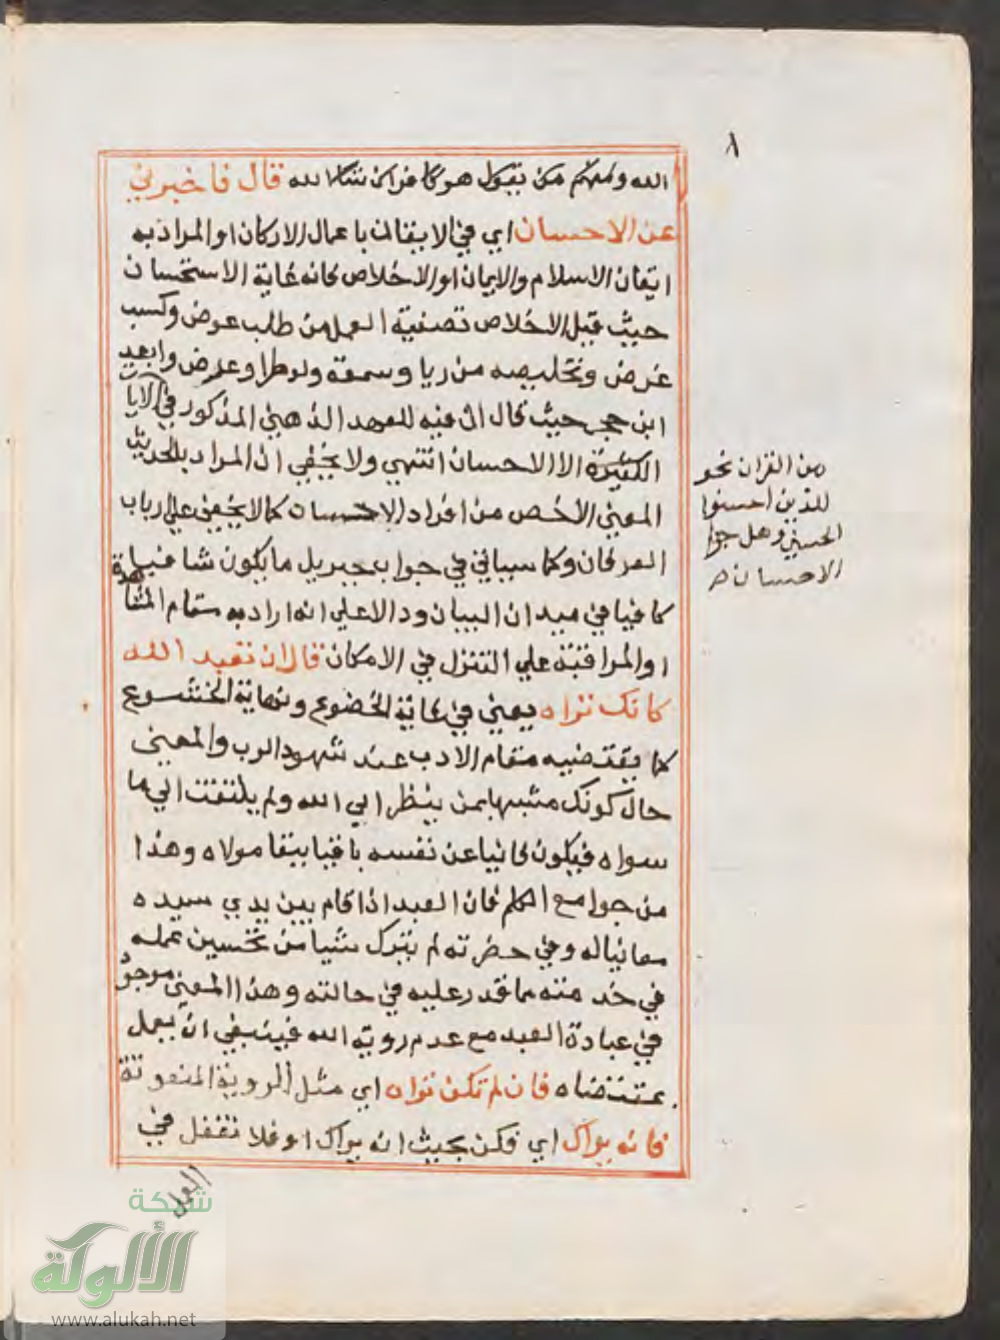 ٨
الله ومنهم من يقول هو كافر ان شاء الله قال فاخبرني
عن الاحسان اي في الايقان باعمال الاركان او المراد به
اتقان الاسلام والايمان او الاخلاص كانه غاية الاستحسان
حيث قيل الاخلاص تصفية العمل من طلب عوض وكسب
غرض وتخليصه من ريا وسمعة و وعرض وابعد
ابن حجر حيث قال ال فيه للعهد الذهني المذكور في الايات
الكثيرة الا الاحسان انتهي ولا يخفي ان المراد بالحديث
المعني الاخص من افراد الاحسان كما لا يخفي علي ارباب
العرفان وكما سياتي في جواب جبريل ما يكون شافيا
كافيا في ميدان البيان ودالا علي انه اراد به مقام المشاهدة
او المراقبة علي التنزل في الامكان قال ان تعبد الله
كانك تراه يعني في غاية الخضوع ونهاية الخشوع
كما يقتضيه مقام الادب عند شهود الرب والمعني
حال كونك مشبها بمن ينظر الي الله ولم يلتفت الي ما
سواه فيكون فانيا عن نفسه باقيا ببقا مولاه وهذا
من جوامع الكلم فان العبد اذا قام بين يدي سيده
معاينا له وفي حضرته لم يترك شيا من تحسين عمله
في خدمته مما قدر عليه في حالته وهذا المعني موجود
في عبادة العبد مع عدم روية الله فينبغي ان يعمل
بمقتضاه فان لم تكن تراه اي مثل الروية المنعوتة
فانه يراك اي فكن بحيث انه يراك او فلا تغفل في
العمل
من القران نحو
للذين احسنوا
الحسني وهل جزا
الاحسان
شبكة
الألوكة
www.alukah.net